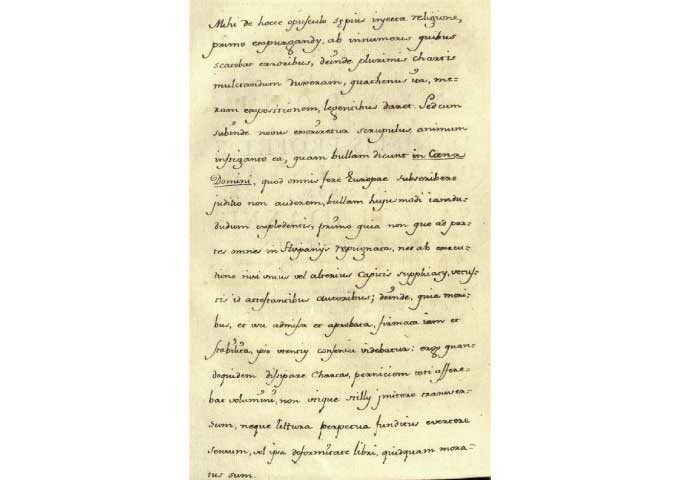 Mihi de hocce opusculo sępius injecta religione,
primo expurgandy, ab innumeris quibus
scatebat erroribus, deinde plurimis chartis
mulctandum duxeram, quathenus ita, me-
ram expositionem, legentibus daret. Sed cum
subinde novus exoriretur scrupulus, animum
instigante ea, quam bullam dicunt in Cœna
Domini, quod omnis fere Europae subscribere
juditio non auderem, bullam hujusmodi iamdu-
dudum explodentis, primo quia non quo ad par-
tes omnes in Hispanijs repugnata, nec ab execu-
tione nisi unius vel alterius capitis supplicacy, vetus-
tis id attestantibus autoribus; deinde, quia mori-
bus, et usu admisa et aprobata, firmata iam et
stabilita, ipso utentiy consensu videbatur: ergo quan-
doquidem dissipare Chartas, perniciem toti assere-
bat volumini, non utique stilly jmitere transver-
sum, neque littura perpetua funditus evertere
sensum, vel ipsa deformitate libri, quidquam mora-
tus sum.